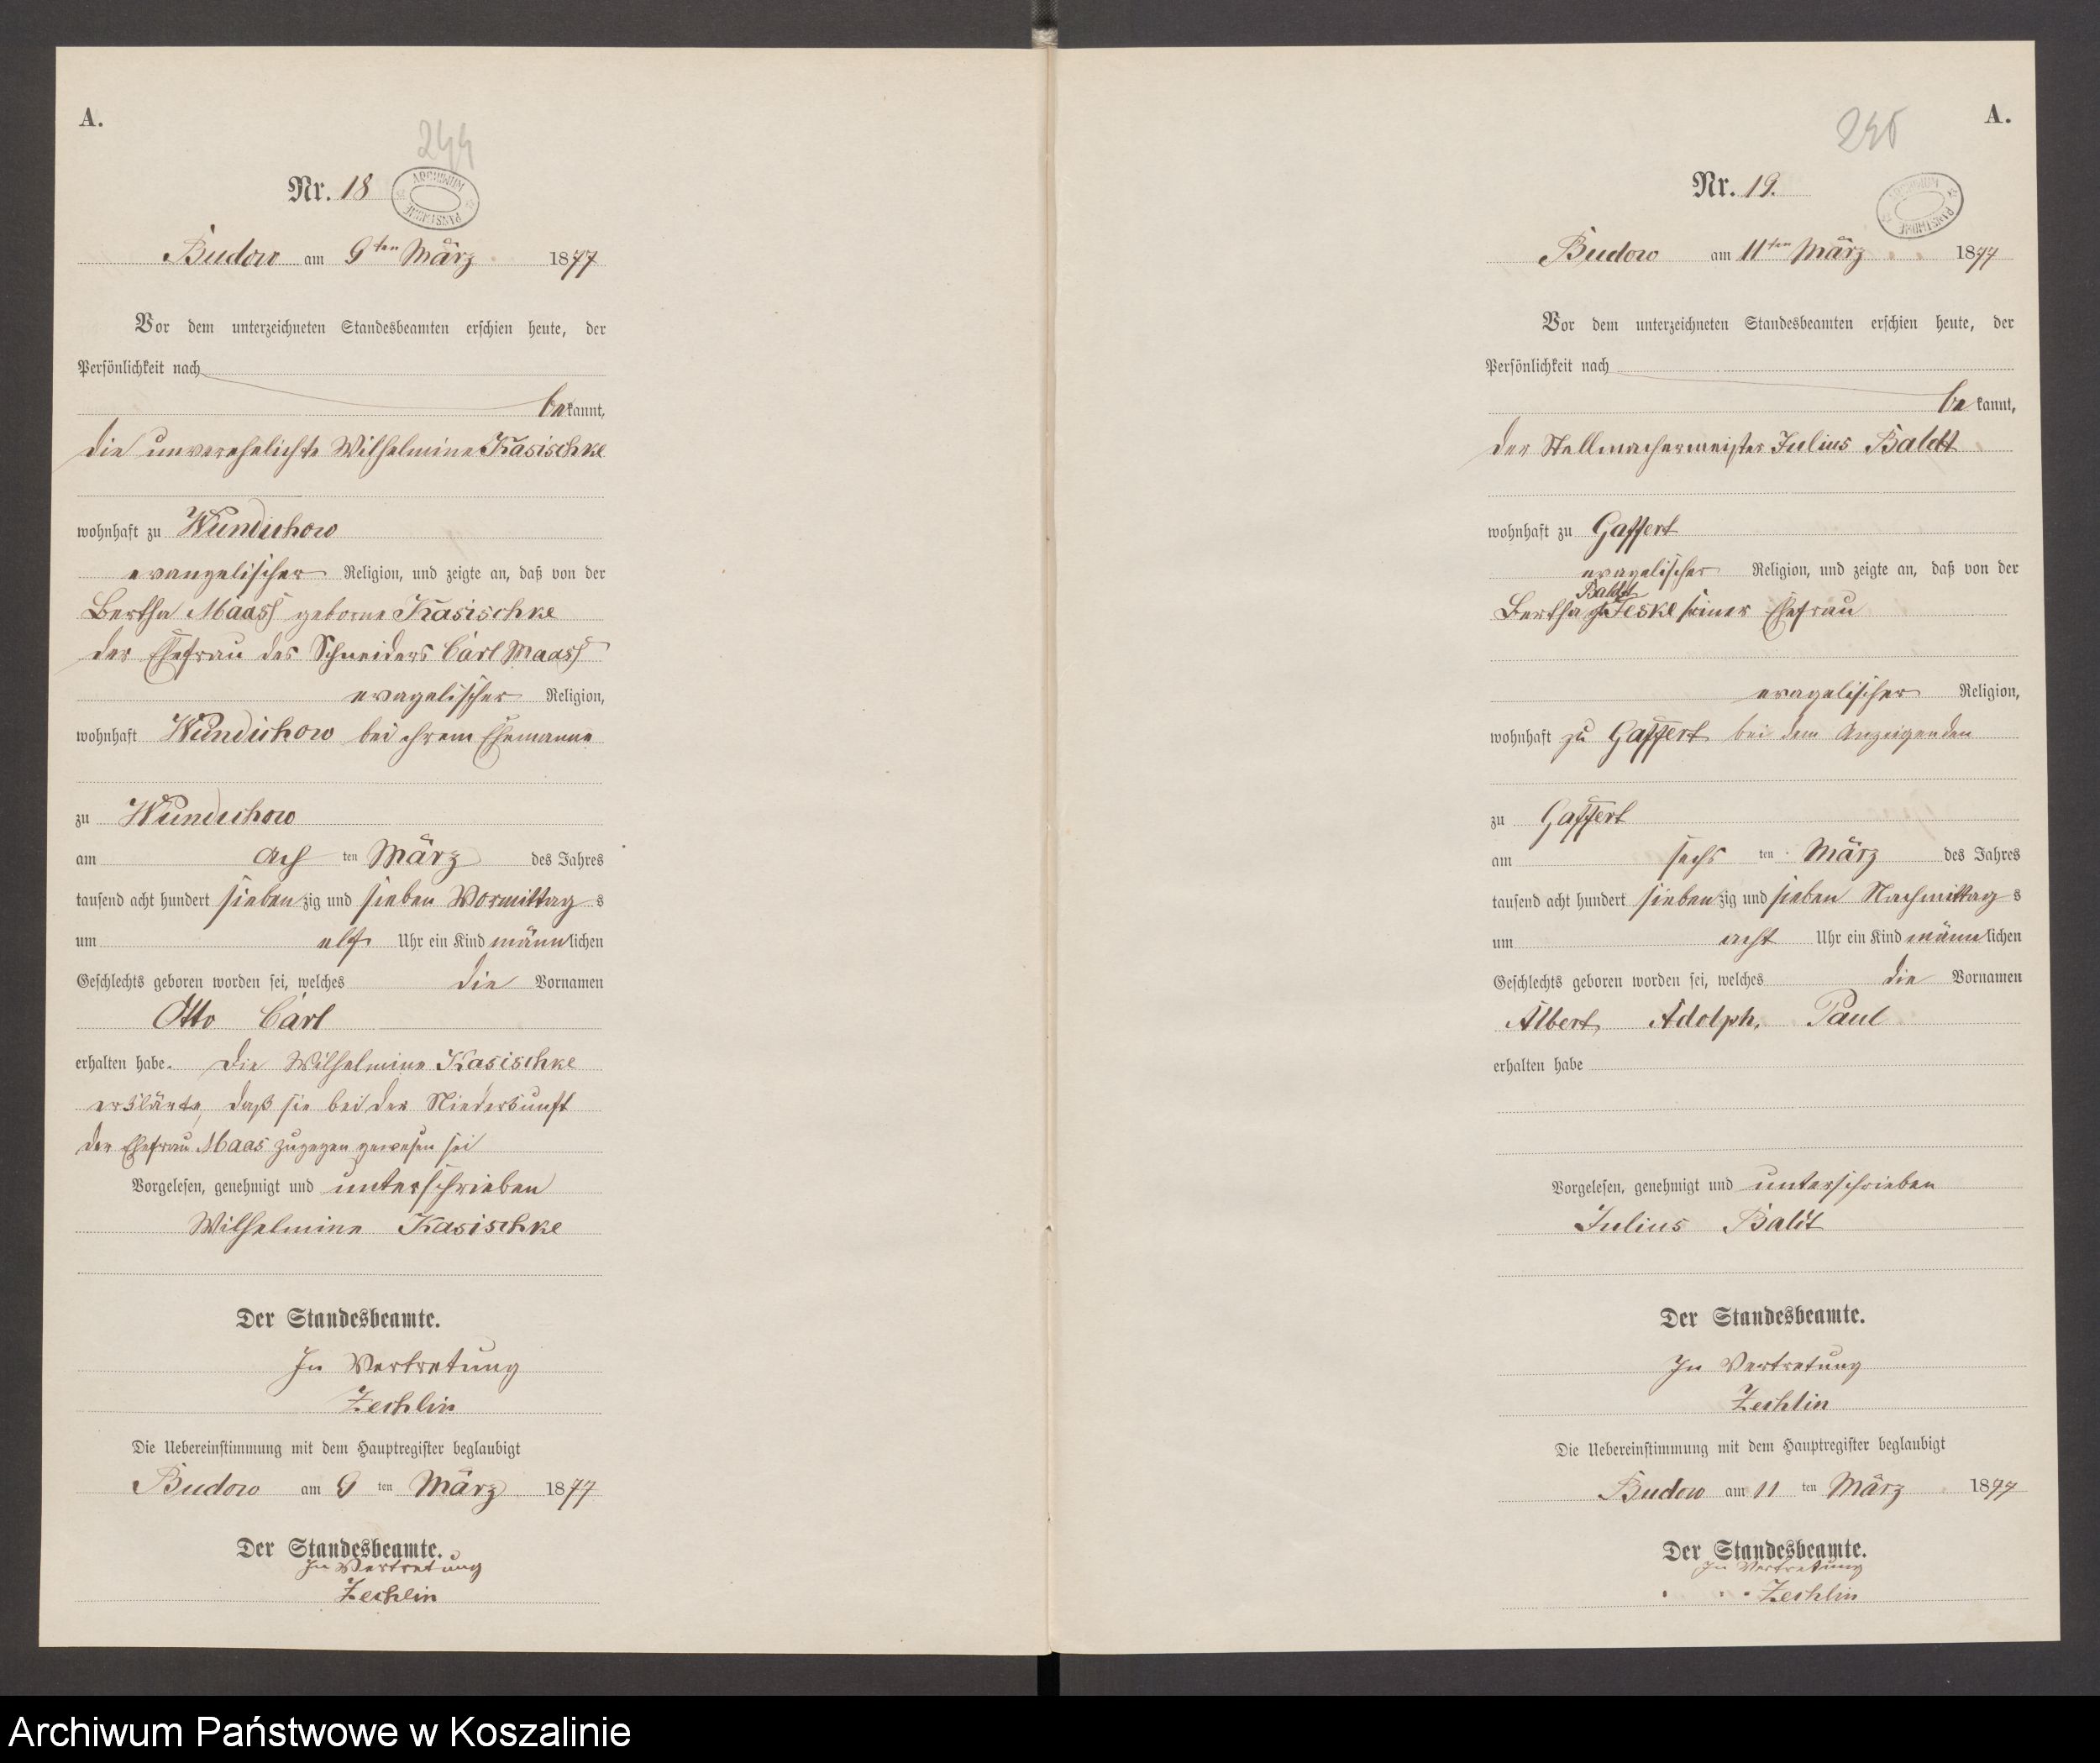 A.
244
Nr. 18
ARCHIWUM PAŃSTWOWE
Budow am 9ten März 1877
Vor dem unterzeichneten Standesbeamten erschien heute, der
Persönlichkeit nach
bekannt,
die unverehelichte Wilhelmine Kasischke
wohnhaft zu Wundichow
evangelischer Religion, und zeigte an, daß von der
Bertha Maass geborne Kasischke
der Ehefrau des Schneiders Carl Maass
evagelischer Religion,
wohnhaft Wundichow bei ihrem Ehemanne
zu Wundichow
am ach ten März des Jahres
tausend acht hundert siebenzig und sieben Vormittags
um elf Uhr ein Kind männlichen
Geschlechts geboren worden sei, welches die Vornamen
Otto Carl
erhalten habe. Die Wilhelmine Kasischke
erklärte, daß sie bei der Niederkunft
der Ehefrau Maas zugegen gewesen sei
Vorgelesen, genehmigt und unterschrieben
Wilhelmine Kasischke
Der Standesbeamte.
In Vertretung
Zechlin
Die Uebereinstimmung mit dem Hauptregister beglaubigt
Budow am 9 ten März 1877
Der Standesbeamte.
In Vertretung
Zechlin
A.
245
Nr. 19.
ARCHIWUM PAŃSTWOWE
Budow am 11ten März 1877
Vor dem unterzeichneten Standesbeamten erschien heute, der
Persönlichkeit nach
bekannt,
der Stellmachermeister Julius Baldt
wohnhaft zu Gaffert
evagelischer Religion, und zeigte an, daß von der
Baldt
Bertha Jeske seiner Ehefrau
evagelischer Religion,
wohnhaft zu Gaffert bei dem Anzeigenden
zu Gaffert
am sechs ten März des Jahres
tausend acht hundert siebenzig und sieben Nachmittags
um acht Uhr ein Kind männlichen
Geschlechts geboren worden sei, welches die Vornamen
Albert, Adolph, Paul
erhalten habe
Vorgelesen, genehmigt und unterschrieben
Julius Baldt
Der Standesbeamte.
In Vertretung
Zechlin
Die Uebereinstimmung mit dem Hauptregister beglaubigt
Budow am 11 ten März 1877
Der Standesbeamte.
In Vertretung
Zechlin
Archiwum Państwowe w Koszalinie